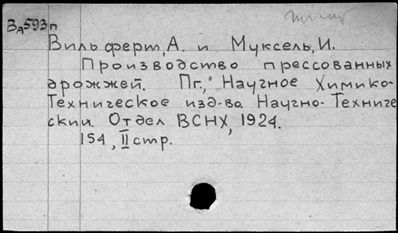 Вд593п
Вильферт, А. и Муксель, И.
Производство прессованных
дрожжей. Пг., Научное Химико-
Техническое изд-во Научно-Техниче
ский Отдел ВСНХ, 1924.
154, II стр.